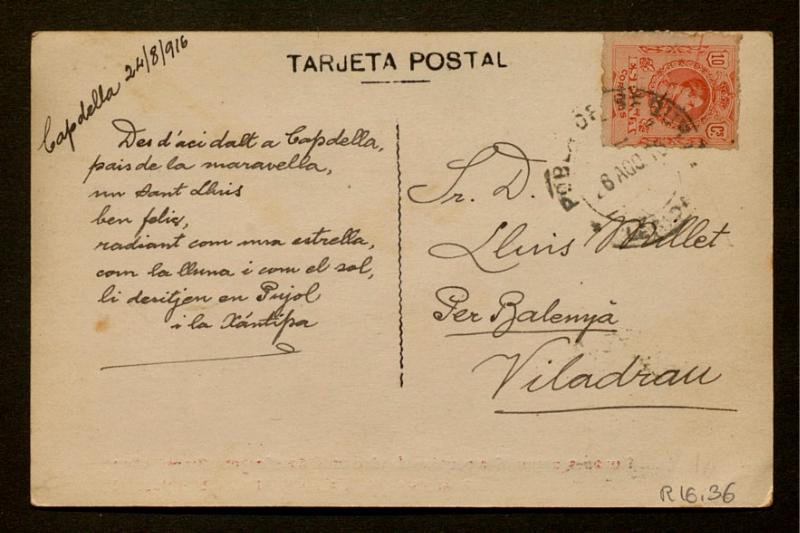 TARJETA POSTAL
Capdella 24/8/916
Des d'aci dalt a Capdella,
pais de la maravella,
un Sant Lluis
ben feliç,
radiant com una estrella,
com la lluna i com el sol,
li desitjen en Pujol
i la Xántipa
10
CTS
Sr. D.
Lluis Millet
Per Balenyà
Viladrau
R16.36